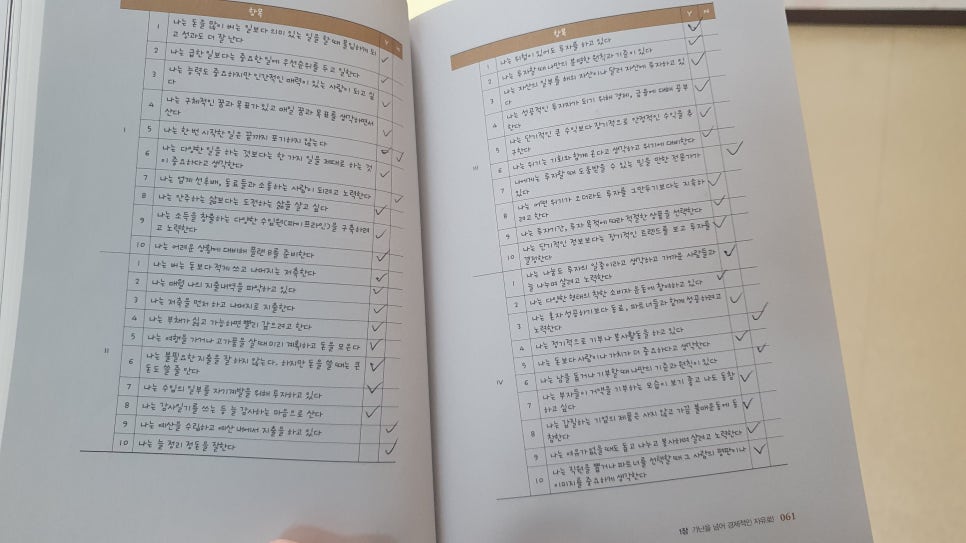 항목 Y N
1 나는 돈을 많이 버는 일보다 의미 있는 일을 할 때 몰입하게 되
고 성과도 더 잘 난다
2 나는 급한 일보다는 중요한 일에 우선순위를 두고 일한다
3 나는 능력도 중요하지만 인간적인 매력이 있는 사람이 되고 싶
다
4 나는 구체적인 꿈과 목표가 있고 매일 꿈과 목표를 생각하면서
산다
I
5 나는 한 번 시작한 일은 끝까지 포기하지 않는다
6 나는 다양한 일을 하는 것보다는 한 가지 일을 제대로 하는 것
이 중요하다고 생각한다
7 나는 업계 선후배, 동료들과 소통하는 사람이 되려고 노력한다
8 나는 안주하는 삶보다는 도전하는 삶을 살고 싶다
9 나는 소득을 창출하는 다양한 수입원(파이프라인)을 구축하려
고 노력한다
10 나는 어려운 상황에 대비해 플랜 B를 준비한다
1 나는 버는 돈보다 적게 쓰고 나머지는 저축한다
2 나는 매월 나의 지출내역을 파악하고 있다
3 나는 저축을 먼저 하고 나머지로 지출한다
4 나는 부채가 싫고 가능하면 빨리 갚으려고 한다
5 나는 여행을 가거나 고가품을 살 때 미리 계획하고 돈을 모은다
II
6 나는 불필요한 지출을 잘 하지 않는다. 하지만 돈을 쓸 때는 큰
돈도 쓸 줄 안다
7 나는 수입의 일부를 자기계발을 위해 투자하고 있다
8 나는 감사일기를 쓰는 등 늘 감사하는 마음으로 산다
9 나는 예산을 수립하고 예산 내에서 지출을 하고 있다
10 나는 늘 정리 정돈을 잘한다
항목 Y N
1 나는 위험이 있어도 투자를 하고 있다
2 나는 투자할 때 나만의 분명한 원칙과 기준이 있다
3 나는 자산의 일부를 해외 자산이나 달러 자산에 투자하고 있
다
4 나는 성공적인 투자자가 되기 위해 경제, 금융에 대해 공부
한다
5 나는 단기적인 큰 수익보다 장기적으로 안정적인 수익을 추
구한다
III
6 나는 위기는 기회와 함께 온다고 생각하고 위기에 대비한다
7 나에게는 투자할 때 도움받을 수 있는 믿을 만한 전문가가
있다
8 나는 어떤 위기가 오더라도 투자를 그만두기보다는 지속하
려고 한다
9 나는 투자기간, 투자 목적에 따라 적절한 상품을 선택한다
10 나는 단기적인 정보보다는 장기적인 트렌드를 보고 투자를
결정한다
1 나는 나눔도 투자의 일종이라고 생각하고 가까운 사람들과
늘 나누며 살려고 노력한다
2 나는 다양한 형태의 착한 소비자 운동에 참여하고 있다
3 나는 혼자 성공하기보다 동료, 파트너들과 함께 성공하려고
노력한다
4 나는 정기적으로 기부나 봉사활동을 하고 있다
5 나는 돈보다 사람이나 가치가 더 중요하다고 생각한다
IV
6 나는 남을 돕거나 기부할 때 나만의 기준과 원칙이 있다
7 나는 부자들이 거액을 기부하는 모습이 보기 좋고 나도 동참
하고 싶다
8 나는 갑질하는 기업의 제품은 사지 않고 가끔 불매운동에 동
참한다
9 나는 여유가 없을 때도 돕고 나누고 봉사하며 살려고 노력한다
10 나는 직원을 뽑거나 파트너를 선택할 때 그 사람의 평판이나
이미지를 중요하게 생각한다
1장 가난을 넘어 경제적인 자유로! 061